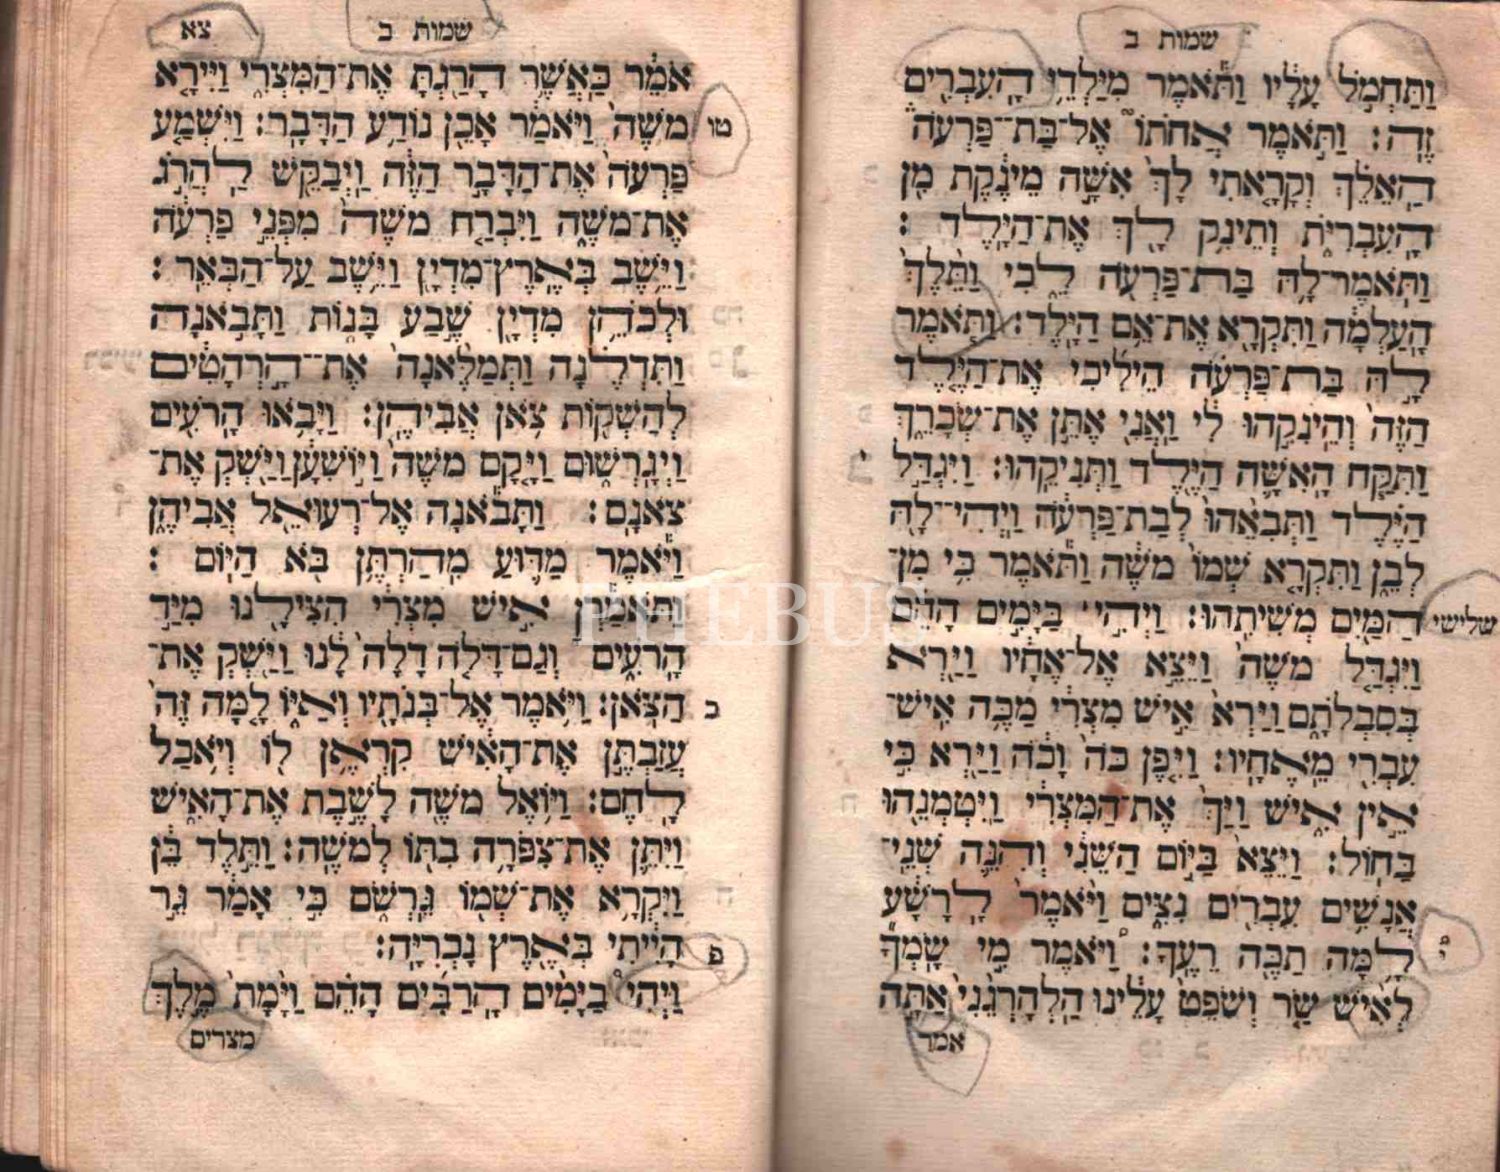 שמות ב
וַתַּחְמֹ֣ל עָלָ֔יו וַתֹּ֕אמֶר מִיַּלְדֵ֥י הָֽעִבְרִ֖ים
זֶֽה׃ וַתֹּ֣אמֶר אֲחֹתוֹ֮ אֶל־בַּת־פַּרְעֹה֒
הַאֵלֵ֗ךְ וְקָרָ֤אתִי לָךְ֙ אִשָּׁ֣ה מֵינֶ֔קֶת מִ֖ן
הָעִבְרִיֹּ֑ת וְתֵינִ֥ק לָ֖ךְ אֶת־הַיָּֽלֶד ׃
וַתֹּֽאמֶר־לָ֥הּ בַּת־פַּרְעֹ֖ה לֵ֑כִי וַתֵּ֙לֶךְ֙
הָֽעַלְמָ֔ה וַתִּקְרָ֖א אֶת־אֵ֥ם הַיָּֽלֶד׃ וַתֹּ֧אמֶר
לָ֣הּ בַּת־פַּרְעֹ֗ה הֵילִ֜יכִי אֶת־הַיֶּ֤לֶד
הַזֶּה֙ וְהֵינִקִ֣הוּ לִ֔י וַאֲנִ֖י אֶתֵּ֣ן אֶת־שְׂכָרֵ֑ךְ
וַתִּקַּ֧ח הָאִשָּׁ֛ה הַיֶּ֖לֶד וַתְּנִיקֵֽהוּ׃ וַיִּגְדַּ֣ל
הַיֶּ֗לֶד וַתְּבִאֵ֙הוּ֙ לְבַת־פַּרְעֹ֔ה וַֽיְהִי־לָ֖הּ
לְבֵ֑ן וַתִּקְרָ֤א שְׁמוֹ֙ מֹשֶׁ֔ה וַתֹּ֕אמֶר כִּ֥י מִן־
הַמַּ֖יִם מְשִׁיתִֽהוּ׃ וַיְהִ֣י בַּיָּמִ֣ים הָהֵ֗ם שלישי
וַיִּגְדַּ֤ל מֹשֶׁה֙ וַיֵּצֵ֣א אֶל־אֶחָ֔יו וַיַּ֖רְא
בְּסִבְלֹתָ֑ם וַיַּרְא֙ אִ֣ישׁ מִצְרִ֔י מַכֶּ֥ה אִישׁ־
עִבְרִ֖י מֵאֶחָֽיו׃ וַיִּ֤פֶן כֹּה֙ וָכֹ֔ה וַיַּ֖רְא כִּ֣י
אֵ֣ין אִ֑ישׁ וַיַּךְ֙ אֶת־הַמִּצְרִ֔י וַֽיִּטְמְנֵ֖הוּ
בַּחֽוֹל׃ וַיֵּצֵא֙ בַּיּ֣וֹם הַשֵּׁנִ֔י וְהִנֵּ֛ה שְׁנֵֽי־
אֲנָשִׁ֥ים עִבְרִ֖ים נִצִּ֑ים וַיֹּ֙אמֶר֙ לָֽרָשָׁ֔ע
לָ֥מָּה תַכֶּ֖ה רֵעֶֽךָ׃ וַיֹּ֠אמֶר מִ֣י שָֽׂמְךָ֞
לְאִ֨ישׁ שַׂ֤ר וְשֹׁפֵט֙ עָלֵ֔ינוּ הַלְהָרְגֵ֙נִי֙ אַתָּ֣ה
אמר
שמות ב צא
אֹמֵ֔ר כַּאֲשֶׁ֥ר הָרַ֖גְתָּ אֶת־הַמִּצְרִ֑י וַיִּירָ֤א
טו מֹשֶׁה֙ וַיֹּאמַ֔ר אָכֵ֖ן נוֹדַ֥ע הַדָּבָֽר׃ וַיִּשְׁמַ֤ע
פַּרְעֹה֙ אֶת־הַדָּבָ֣ר הַזֶּ֔ה וַיְבַקֵּ֖שׁ לַהֲרֹ֣ג
אֶת־מֹשֶׁ֑ה וַיִּבְרַ֤ח מֹשֶׁה֙ מִפְּנֵ֣י פַרְעֹ֔ה
וַיֵּ֥שֶׁב בְּאֶֽרֶץ־מִדְיָ֖ן וַיֵּ֥שֶׁב עַֽל־הַבְּאֵֽר׃
וּלְכֹהֵ֥ן מִדְיָ֖ן שֶׁ֣בַע בָּנ֑וֹת וַתָּבֹ֣אנָה
וַתִּדְלֶ֗נָה וַתְּמַלֶּ֙אנָה֙ אֶת־הָ֣רְהָטִ֔ים
לְהַשְׁק֖וֹת צֹ֥אן אֲבִיהֶֽן׃ וַיָּבֹ֥אוּ הָרֹעִ֖ים
וַיְגָרְשׁ֑וּם וַיָּ֤קָם מֹשֶׁה֙ וַיּ֣וֹשִׁעָ֔ן וַיַּ֖שְׁקְ אֶת־
צֹאנָֽם׃ וַתָּבֹ֕אנָה אֶל־רְעוּאֵ֖ל אֲבִיהֶ֑ן
וַיֹּ֕אמֶר מַדּ֛וּעַ מִהַרְתֶּ֥ן בֹּ֖א הַיּֽוֹם ׃
וַתֹּאמַ֕רְןָ אִ֣ישׁ מִצְרִ֔י הִצִּילָ֖נוּ מִיַּ֣ד
הָרֹעִ֑ים וְגַם־דָּלֹ֤ה דָלָה֙ לָ֔נוּ וַיַּ֖שְׁקְ אֶת־
הַצֹּֽאן׃ וַיֹּ֥אמֶר אֶל־בְּנֹתָ֖יו וְאַיּ֑וֹ לָ֤מָּה זֶּה֙ כ
עֲזַבְתֶּ֣ן אֶת־הָאִ֔ישׁ קִרְאֶ֥ן ל֖וֹ וְיֹ֥אכַל
לָֽחֶם׃ וַיּ֥וֹאֶל מֹשֶׁ֖ה לָשֶׁ֣בֶת אֶת־הָאִ֑ישׁ
וַיִּתֵּ֛ן אֶת־צִפֹּרָ֥ה בִתּ֖וֹ לְמֹשֶֽׁה׃ וַתֵּ֣לֶד בֵּ֔ן
וַיִּקְרָ֥א אֶת־שְׁמ֖וֹ גֵּרְשֹׁ֑ם כִּ֣י אָמַ֔ר גֵּ֣ר
הָיִ֔יתִי בְּאֶ֖רֶץ נָכְרִיָּֽה׃ פ
וַיְהִי֩ בַיָּמִ֨ים הָֽרַבִּ֜ים הָהֵ֗ם וַיָּ֙מָת֙ מֶ֣לֶךְ
מצרים
PHEBUS